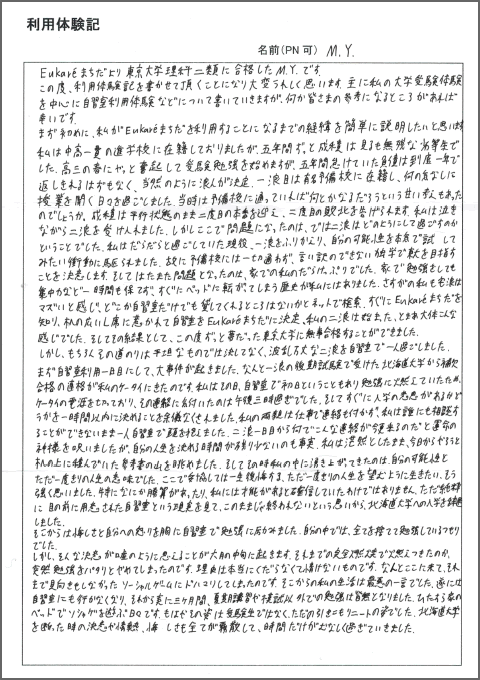 利用体験記
名前(PN 可) M.Y.
Eukaréまちだより東京大学理科二類に合格したM.Y.です。
この度、利用体験記を書かせて頂くことになり大変うれしく思います。主に私の大学受験体験
を中心に自習室利用体験などについて書いていきますが、何か皆さまの参考になるところがあれば
幸いです。
まず初めに、私がEukaréまちだを利用することになるまでの経緯を簡単に説明したいと思います。
私は中高一貫の進学校に在籍しておりましたが、五年間ずっと成績は見るも無惨な劣等生で
した。高三の春にやっと奮起して受験勉強を始めますが、五年間怠けていた負債は到底一年で
返しきれるはずもなく、当然のように浪人が決定。一浪目は有名予備校に在籍し、何の気なしに
授業を聞く日々を過ごしました。当時は予備校に通っていれば何とかなるだろうという甘い考えもあった
のでしょうが、成績は平行状態のまま二度目の本番を迎え、二度目の敗北を告げられます。私は泣き
ながら二浪を受け入れました。しかしここで問題になったのは、では二浪はどのようにして過ごすのか
ということでした。私はだらだらと過ごしていた現役、一浪をふりかえり、自分の可能性を本気で試して
みたい衝動に駆られました。故に予備校には一切通わず、言い訳のできない独学で東大を目指す
ことを決意します。そしてはたまた問題となったのは、家での私のだらけっぷりでした。家で勉強をしても
集中力など一時間も保てず、すぐにベッドに転がってしまう歴史が私にはありました。さすがの私も宅浪は
マズいと感じ、どこか自習室だけでも貸してくれるところはないかとネットで検索、すぐにEukaréまちだを
知り、机の広い上席に惹かれて自習室をEukaréまちだに決定、私の二浪は始まった、とまあ大体こんな
感じでした。そしてその結果として、この度ずっと夢だった東京大学に無事合格することができました。
しかし、もちろんその道のりは平坦なものでは決してなく、波乱万丈な二浪を自習室で一人過ごしました。
まず自習室利用一日目にして、大事件が起きました。なんと一浪の後期試験で受けた北海道大学から補欠
合格の連絡が私のケータイにきたのです。私はその日、自習室で初日ということもあり勉強に燃えていたため、
ケータイの電源を切っており、その連絡に気付いたのは午後三時過ぎでした。そしてすぐに入学の意志があるかど
うかを一時間以内に決めることを余儀なくされました。私の両親は仕事で連絡も付かず、私は誰にも相談す
ることができないまま一人自習室で頭を抱えました。二浪一日目から何でこんな連絡が今更来るのだと運命の
神様を呪いましたが、自分の人生を決める時間が残り少ないのも事実。私は漠然としたまま、今日からやろうと
机の上に積んでいた参考書の山を眺めました。そしてその時私の中に湧き上がってきたのは、自分の可能性と
ただ一度きりの人生の意味でした。ここで妥協しては一生後悔する、ただ一度きりの人生を望むように生きたい、そう
強く思いました。特になにか勝算があったり、私には才能があると確信していたわけではありません。ただ純粋
に目の前に用意された自習室という環境を見て、このまましゃ終われないという思いから、北海道大学への入学を辞退
しました。
そこからは悔しさと自分への怒りを胸に自習室で勉強に励みました。自分の中では、全てを捨てて勉強しているつもり
でした。
しかし、そんな決意が嘘のように思えることが六月の中旬に起きます。それまでの完全燃焼で燃えつきたのか、
突然勉強をパタリとやめてしまったのです。理由は本当にくだらなくて情けないものです。なんとここに来て、それ
まで見向きもしなかったソーシャルゲームにドハマリしてしまったのです。そこからの私の生活は最悪の一言でした。遂には
自習室にも行かなくなり、それから実に三ヶ月間、夏期講習や模試以外での勉強は皆無となりました。ひたすら家の
ベッドでソシャゲを遊ぶ日々です。もはやその姿は受験生ではなく、ただの引きこもりニートの姿でした。北海道大学
を断った時の決意や情熱、悔しさも全てが霧散して、時間だけがむなしく過ぎていきました。